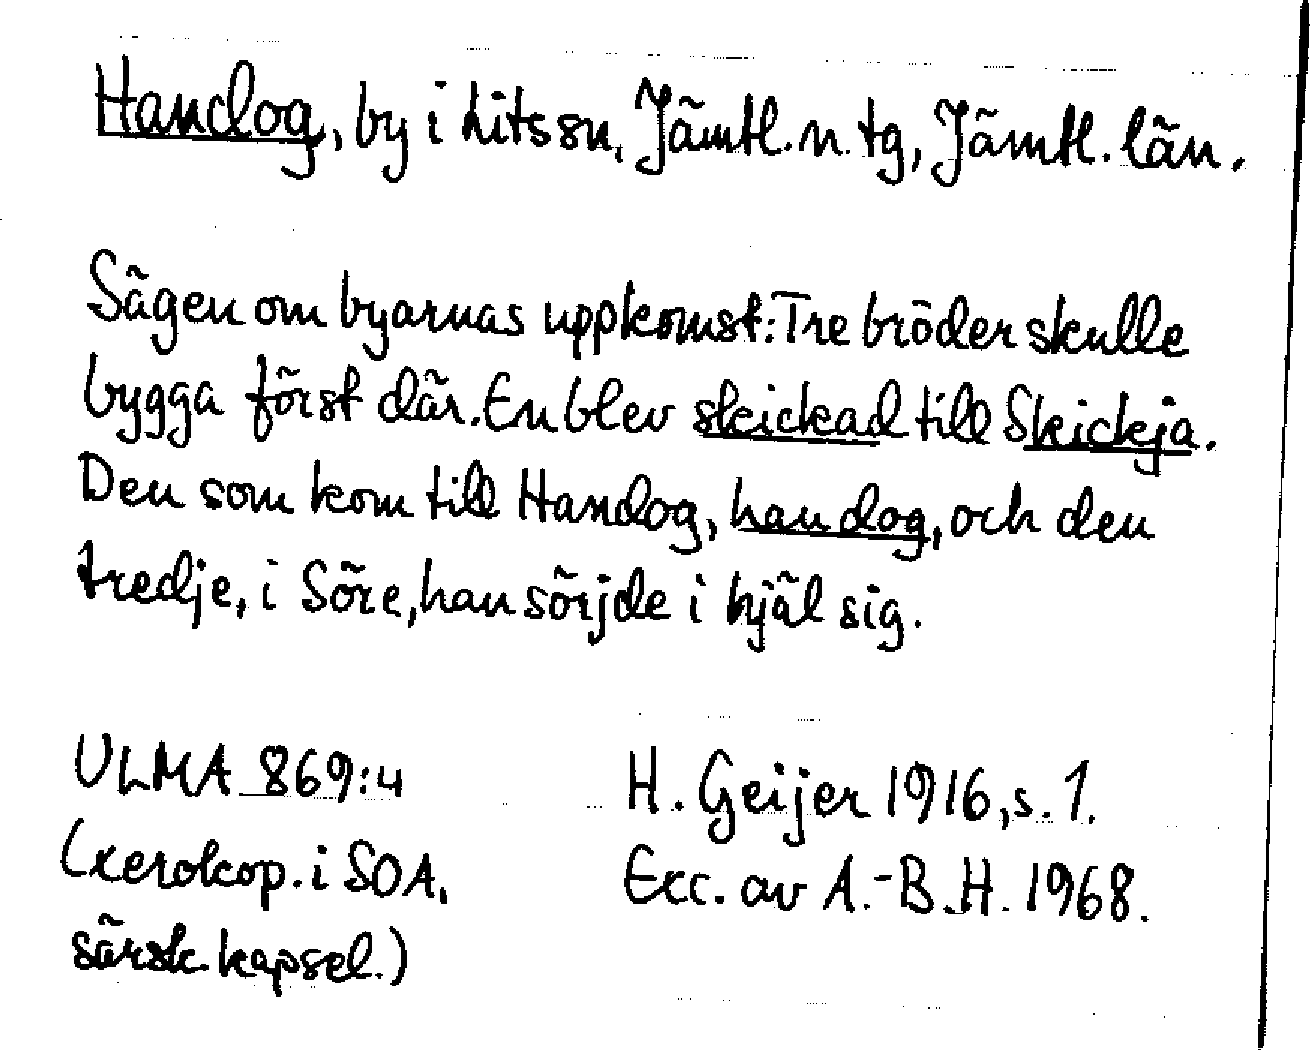 Handog, by i Lits sn, Jämtl. n. tg, Jämtl. län.
Sägen om byarnas uppkomst: Tre bröder skulle
bygga först där. En blev skickad till Skickja.
Den som kom till Handog, han dog, och den
tredje, i Söre, han sörjde i hjäl sig.
ULMA 869:4
H. Geijer 1916, s. 1.
(xerokop. i SOA,
Exc. av A.-B.H. 1968.
särsk. kapsel.)